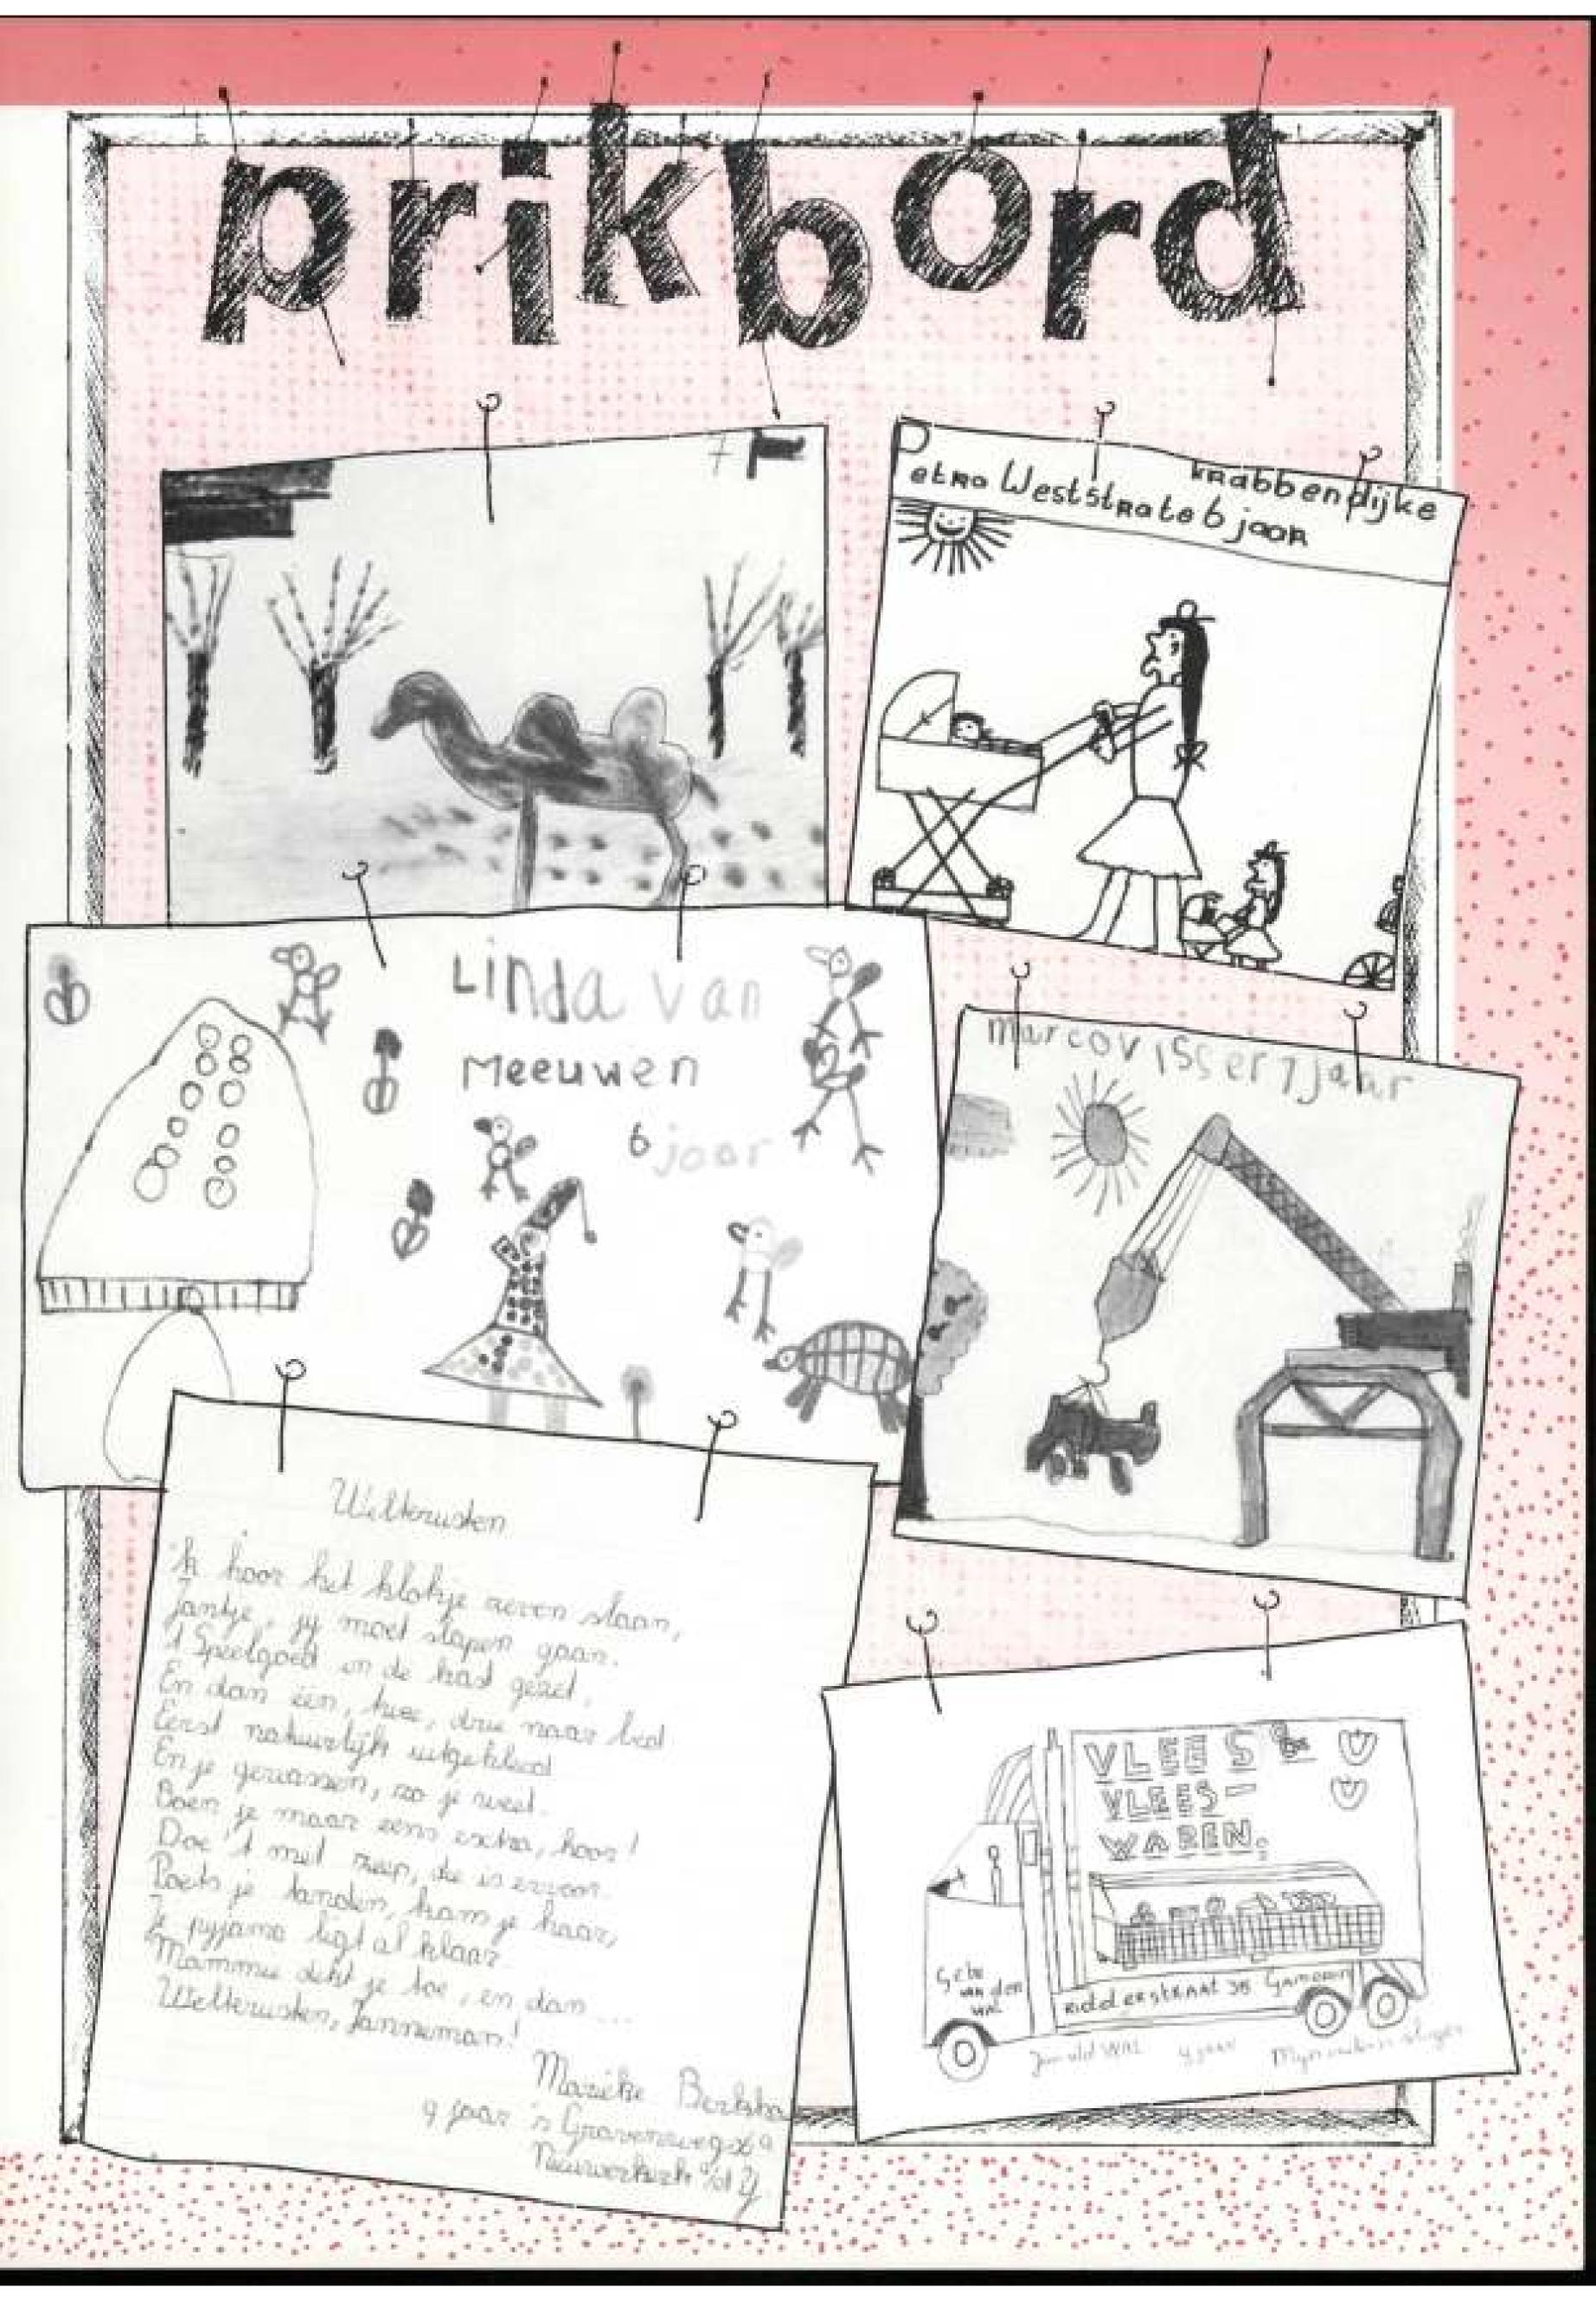 prikbord
Petra Weststrate 6 jaar
krabbendijke
Linda van
Meeuwen
6 jaar
marco visser 7 jaar
Welterusten
Ik hoor het klokje zeven slaan,
Jantje, jij moet slapen gaan.
't Speelgoed in de kast gezet,
En dan één, twee, drie naar bed
Eerst natuurlijk uitgekleed
En je gewassen, zo je weet.
Boen je maar eens extra, hoor!
Doe 't met zeep, die is ervoor.
Poets je tanden, kam je haar,
Je pyjama ligt al klaar.
Mammie dekt je toe, en dan ...
Welterusten, Janneman!
Marieke
9 jaar 's Gravenweg
Nieuwerkerk
VLEES &
VLEES-
WAREN.
van der
Wal
Ridderstraat 38 Gameren
4 jaar